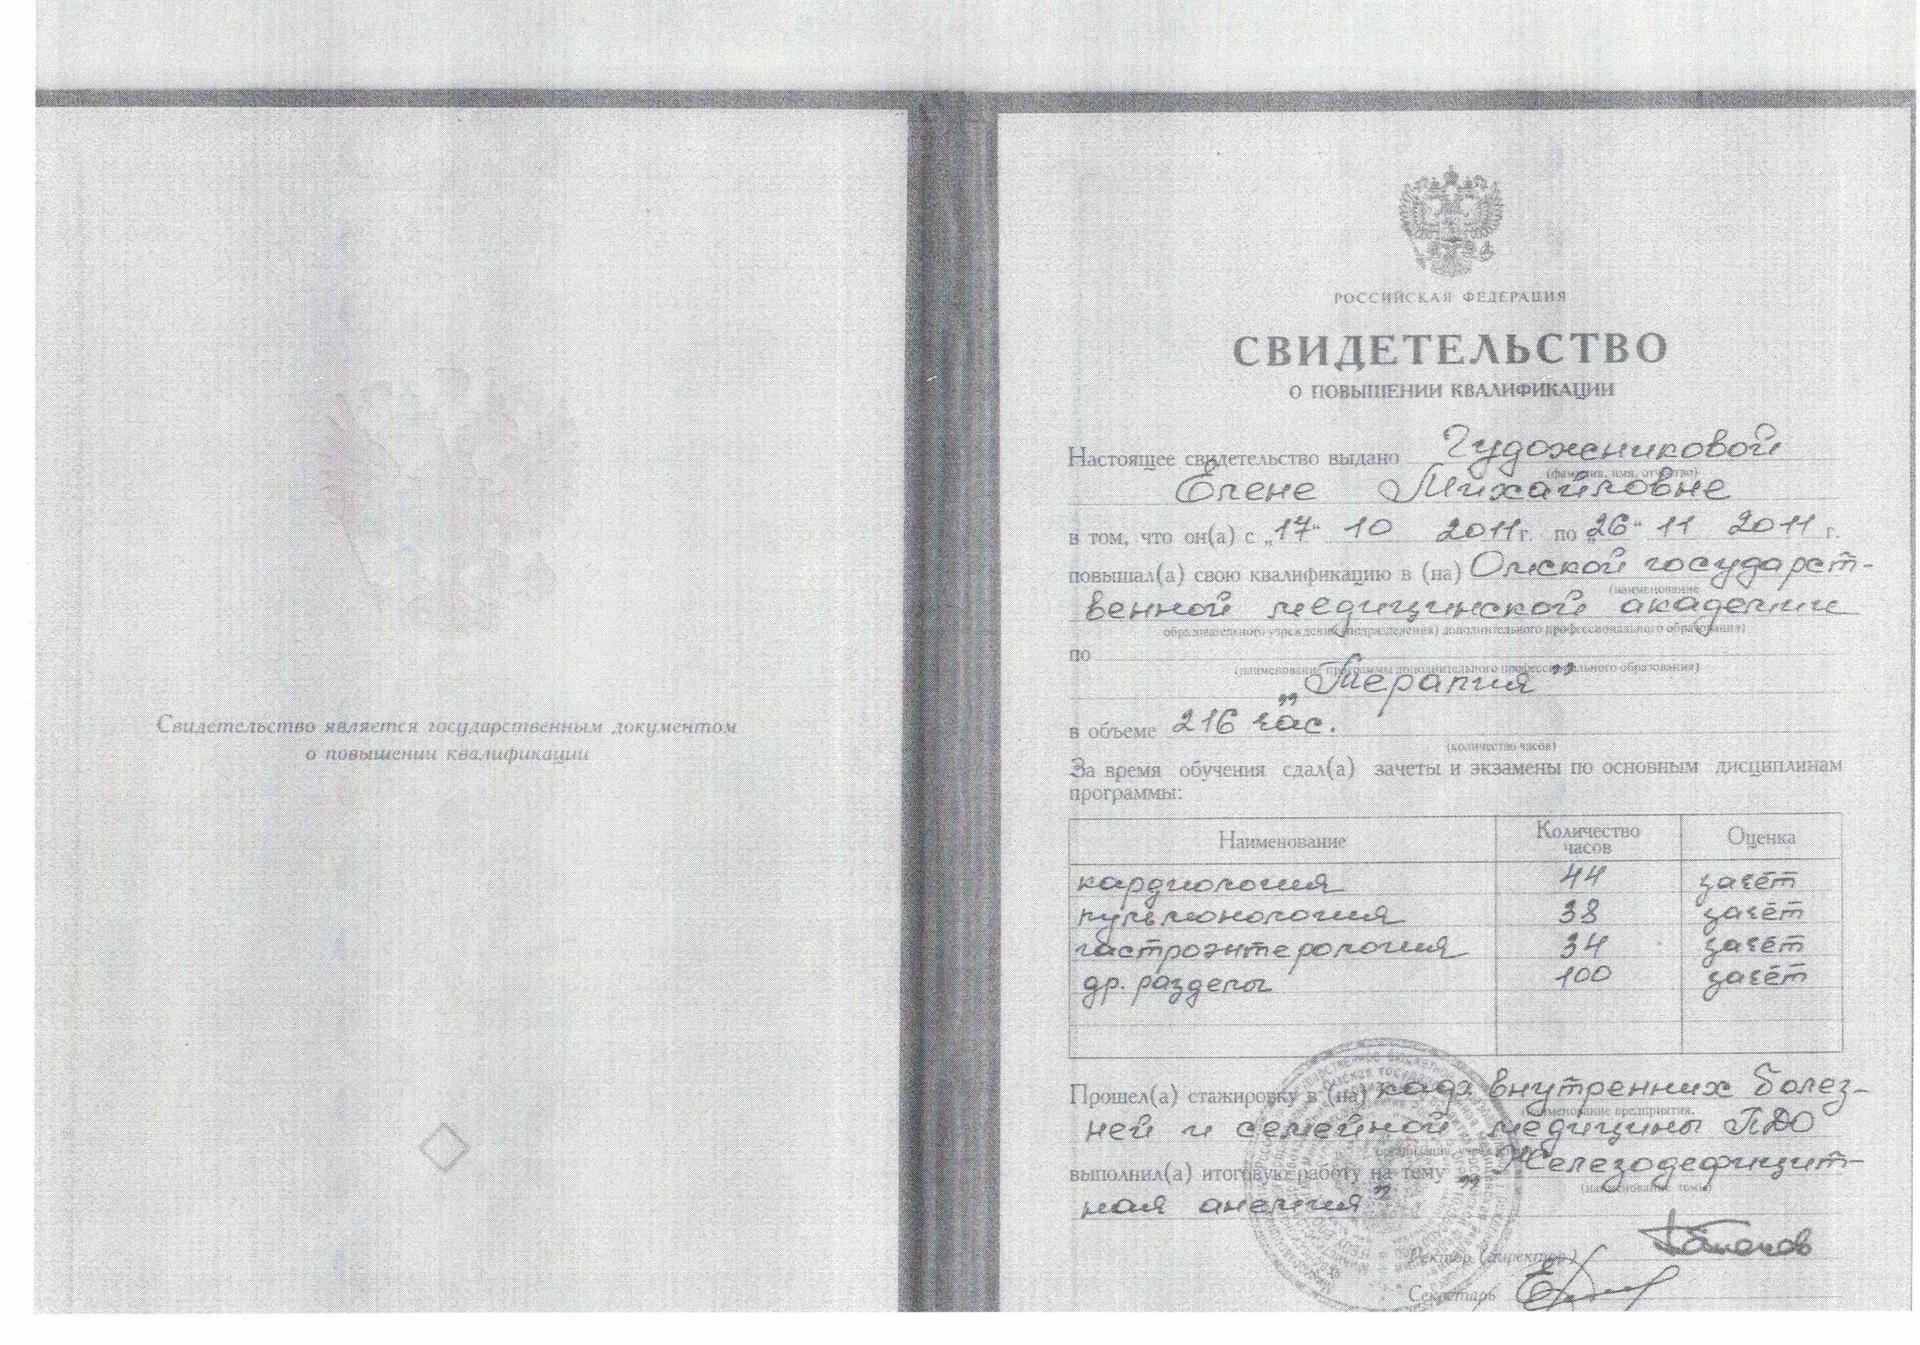 Свидетельство является государственным документом
о повышении квалификации
РОССИЙСКАЯ ФЕДЕРАЦИЯ
СВИДЕТЕЛЬСТВО
О ПОВЫШЕНИИ КВАЛИФИКАЦИИ
Настоящее свидетельство выдано Гудожниковой
(фамилия, имя, отчество)
Елене Михайловне
в том, что он(а) с „17" 10 2011 г. по „26" 11 2011 г.
повышал(а) свою квалификацию в (на) Омской государст-
(наименование
венной медицинской академии
образовательного учреждения (подразделения) дополнительного профессионального образования)
по
(наименование программы дополнительного профессионального образования)
„Терапия"
в объеме 216 час.
(количество часов)
За время обучения сдал(а) зачеты и экзамены по основным дисциплинам
программы:
Наименование Количество часов Оценка
кардиология 44 зачёт
пульмонология 38 зачёт
гастроэнтерология 34 зачёт
др. разделы 100 зачёт
Прошел(а) стажировку в (на) каф. внутренних болез-
(наименование предприятия,
ней и семейной медицины ПДО
организации, учреждения)
выполнил(а) итоговую работу на тему „Железодефицит-
(наименование темы)
ная анемия"
Ректор (директор)
Секретарь